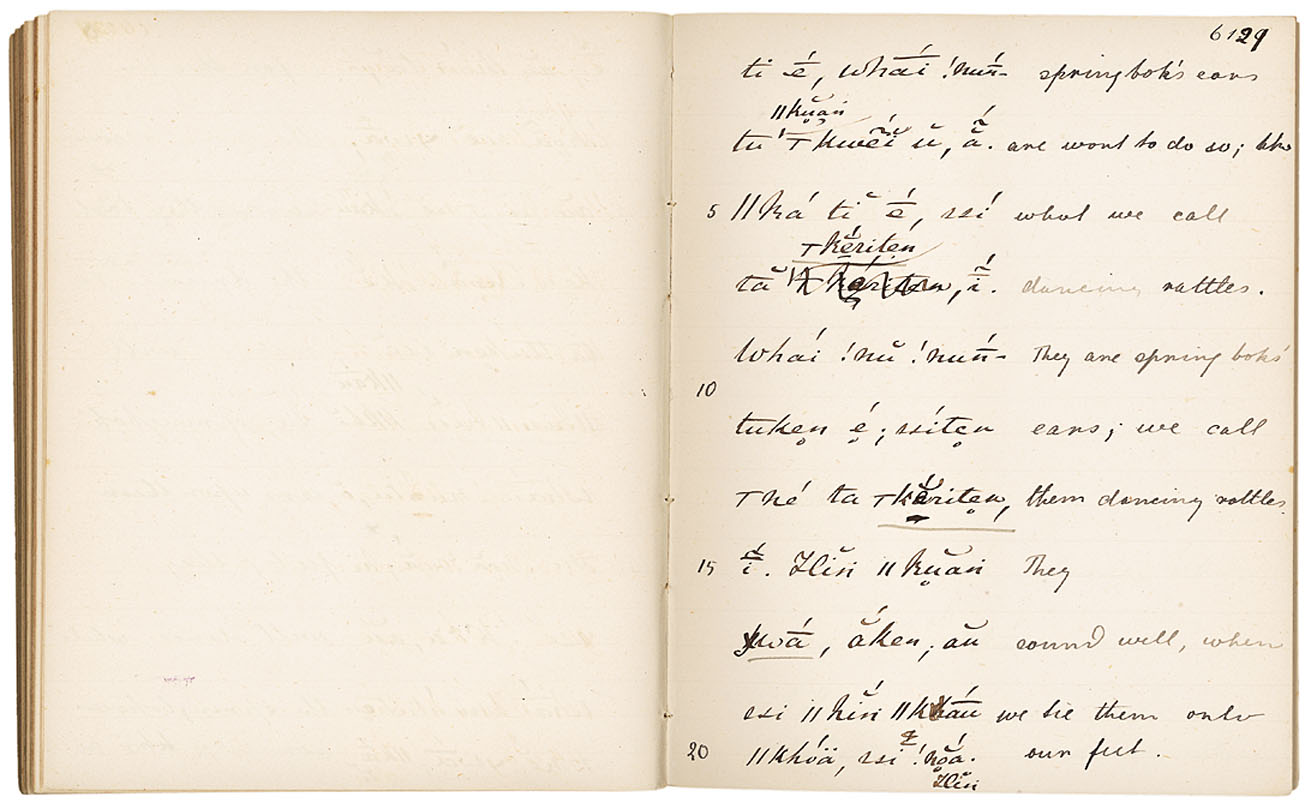 6129
ti é, whāí !nuń- springbok's ears
ǁkŭań
tu ⊤kwẽ́ĭ ŭ, ã́. are wont to do so; like
5 ǁká tĭ é, ssí what we call
⊤kĕ́riten
tă ĩ́. dancing rattles.
Whái !nŭ !nuń- They are springboks'
10
tuken é; ssíten ears; we call
⊤né ta ⊤kĕ́riten, them dancing rattles.
15 ĩ́. Hĭsi ǁkŭań They
ā́, ăken, au sound well, when
ssi ǁhĭń ǁkhāu we tie them onto
20 ǁkhóä, ssi !nŏá. our feet.